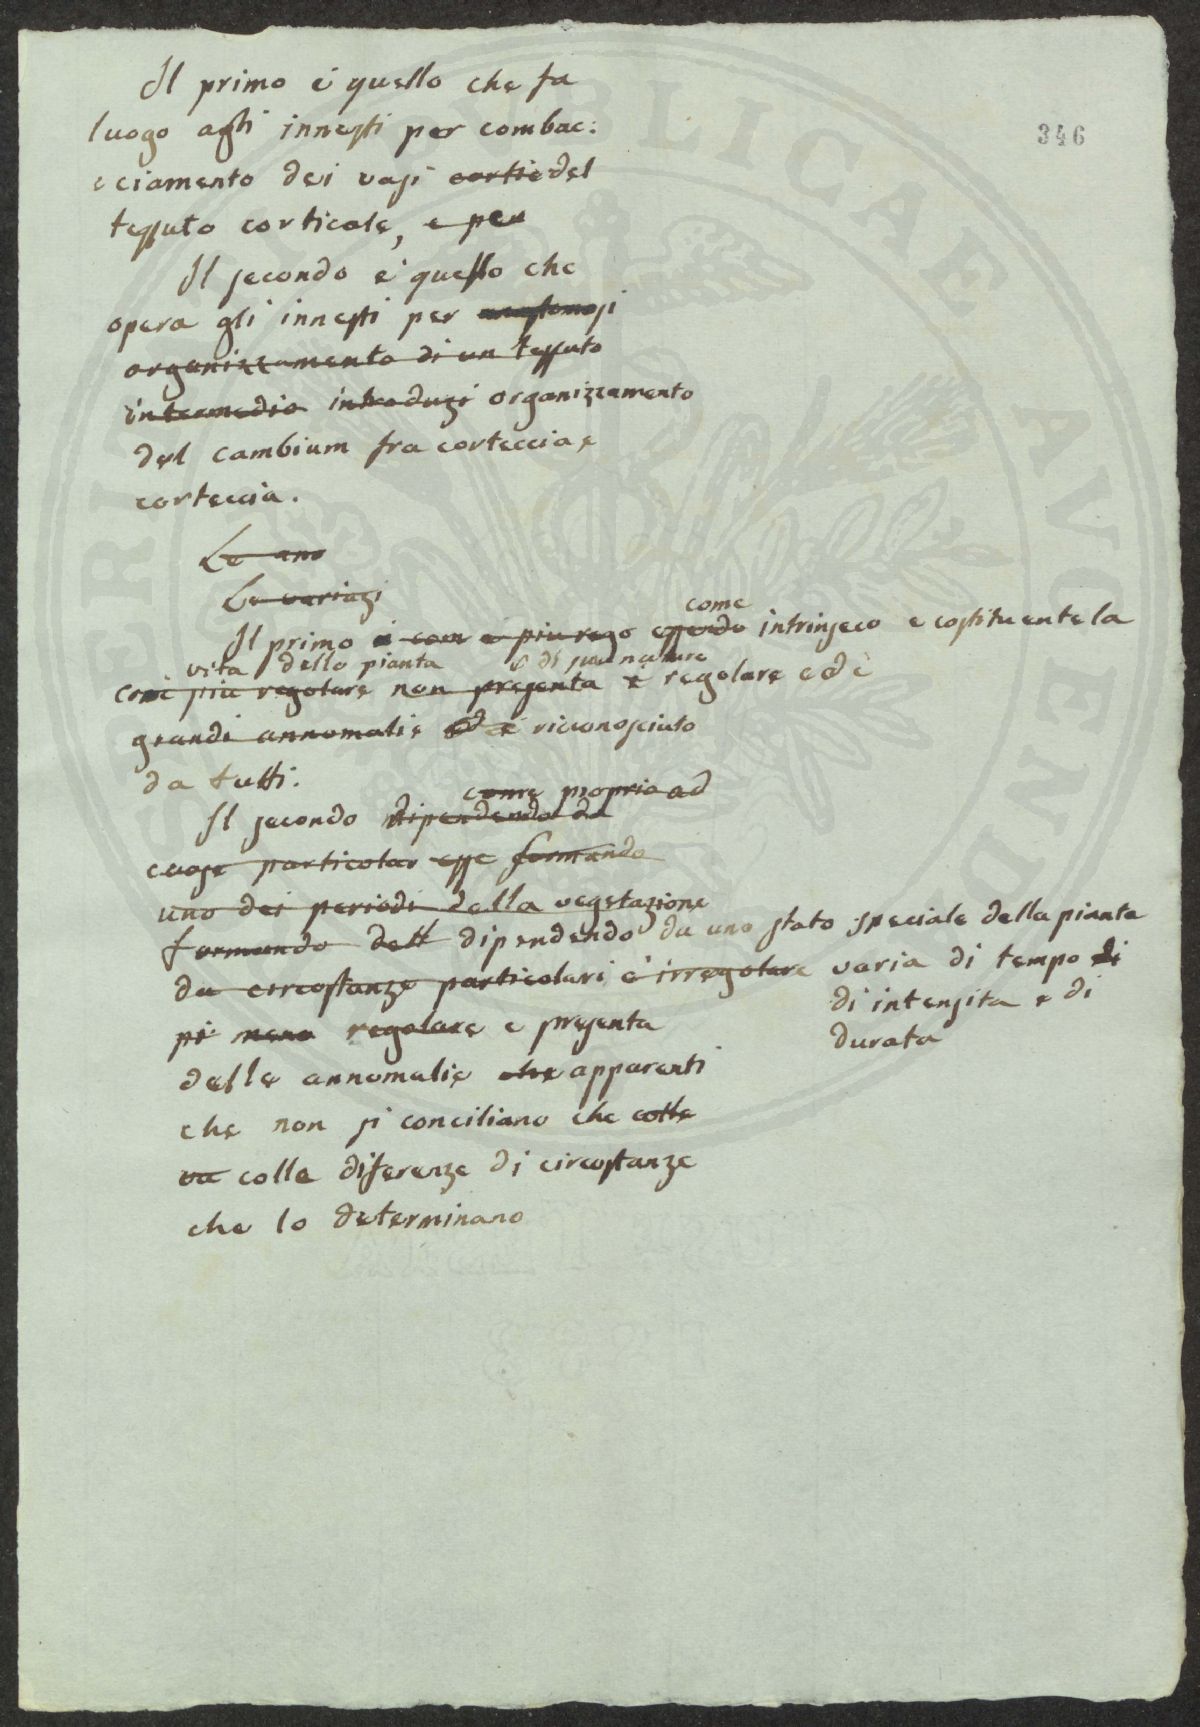 346
Il primo è quello che fa
luogo agli innesti per combac:
cciamento dei vasi cortic del
tessuto corticale, e per
Il secondo è quello che
opera gli innesti per anastomosi
organizzamento di un tessuto
intermedio introduzi organizzamento
del cambium fra corteccia e
corteccia.
Le ano
Le variazi
come
Il primo è com è piu rego essendo intrinseco e costituente la
vita della pianta è di sua natura
come più regolare non presenta è regolare ed è
grandi annomalie ed è riconosciuto
da tutti.
come proprio ad
Il secondo dipendendo da
cause particolar esse formando
uno dei periodi della vegetazione
formando dell dipendendo da uno stato speciale della pianta
da circostanze particolari è irregolare varia di tempo di
di intensita e di
durata
più meno regolare e presenta
delle annomalie che apparenti
che non si conciliano che colle
va colle diferenze di circostanze
che lo determinano